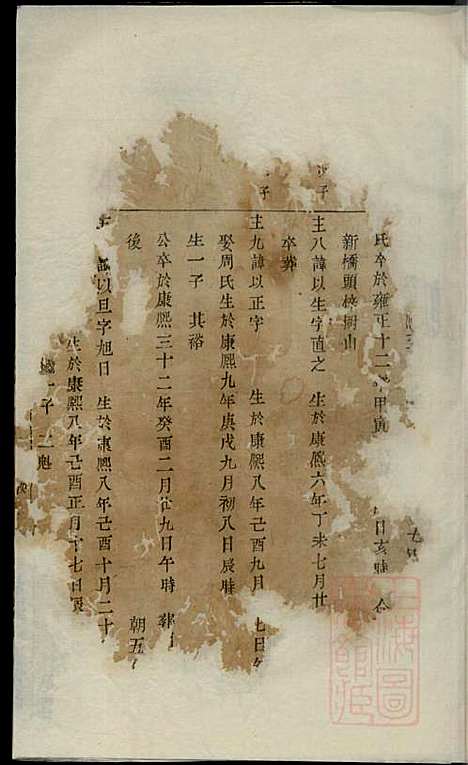 子
子
氏卒於雍正十二 甲寅 日亥時
新橋頭 山
主八諱以生字直之 生於康熙六年丁未七月廿
卒葬
主九諱以正字 生於康熙八年己酉九月 七日
娶周氏生於康熙九年庚戌九月初八日辰時
生一子 其裕
公卒於康熙三十二年癸酉二月廿九日午時 葬
後 朝五
諱以旦字旭日 生於康熙八年己酉十月二十
生於康熙八年己酉正月十七日寅
一子 魁
上海圖